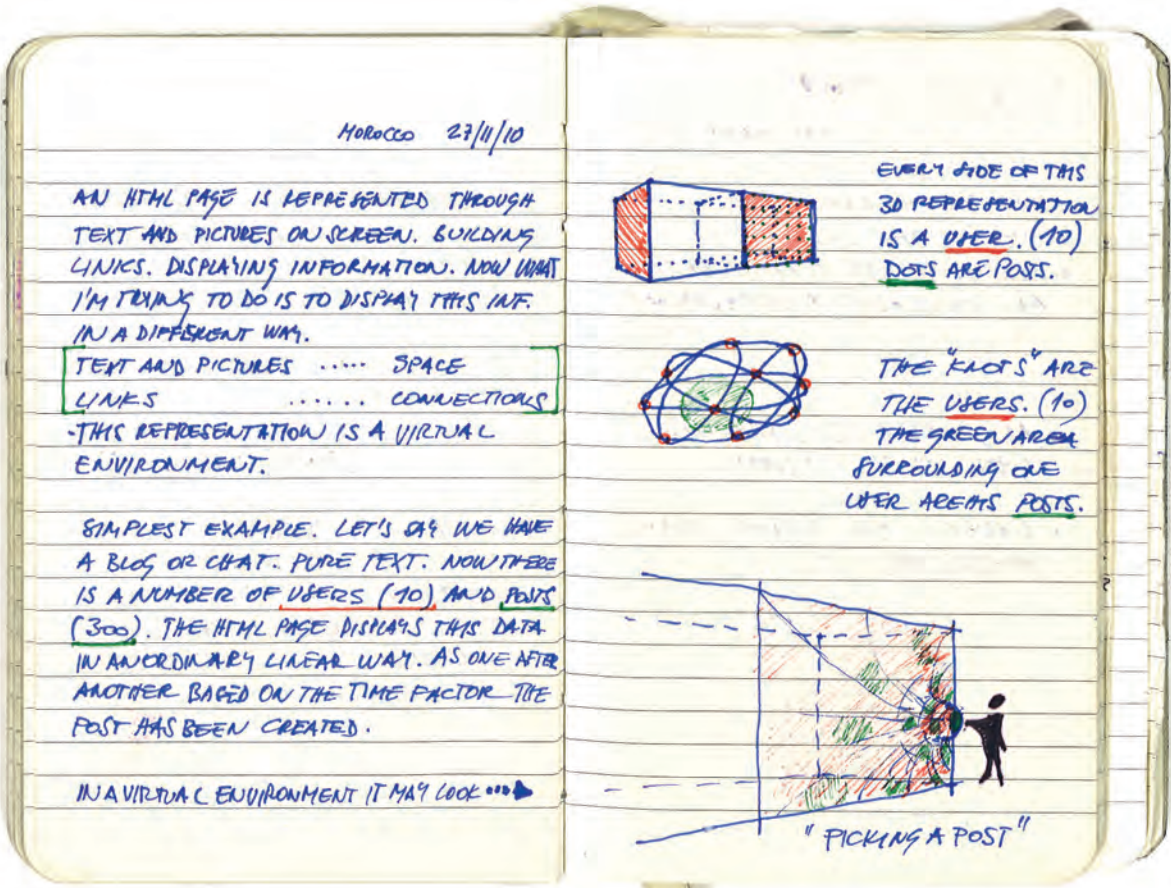 MOROCCO 27/11/10
AN HTML PAGE IS REPRESENTED THROUGH
TEXT AND PICTURES ON SCREEN. BUILDING
LINKS. DISPLAYING INFORMATION. NOW WHAT
I'M TRYING TO DO IS TO DISPLAY THIS INF.
IN A DIFFERENT WAY.
TEXT AND PICTURES ..... SPACE
LINKS ...... CONNECTIONS
-THIS REPRESENTATION IS A VIRTUAL
ENVIRONMENT.
SIMPLEST EXAMPLE. LET'S SAY WE HAVE
A BLOG OR CHAT. PURE TEXT. NOW THERE
IS A NUMBER OF USERS (10) AND POSTS
(300). THE HTML PAGE DISPLAYS THIS DATA
IN AN ORDINARY LINEAR WAY. AS ONE AFTER
ANOTHER BASED ON THE TIME FACTOR THE
POST HAS BEEN CREATED.
IN A VIRTUAL ENVIRONMENT IT MAY LOOK ...
EVERY SIDE OF THIS
3D REPRESENTATION
IS A USER. (10)
DOTS ARE POSTS.
THE "KNOTS" ARE
THE USERS. (10)
THE GREEN AREA
SURROUNDING ONE
USER ARE HIS POSTS.
"PICKING A POST"